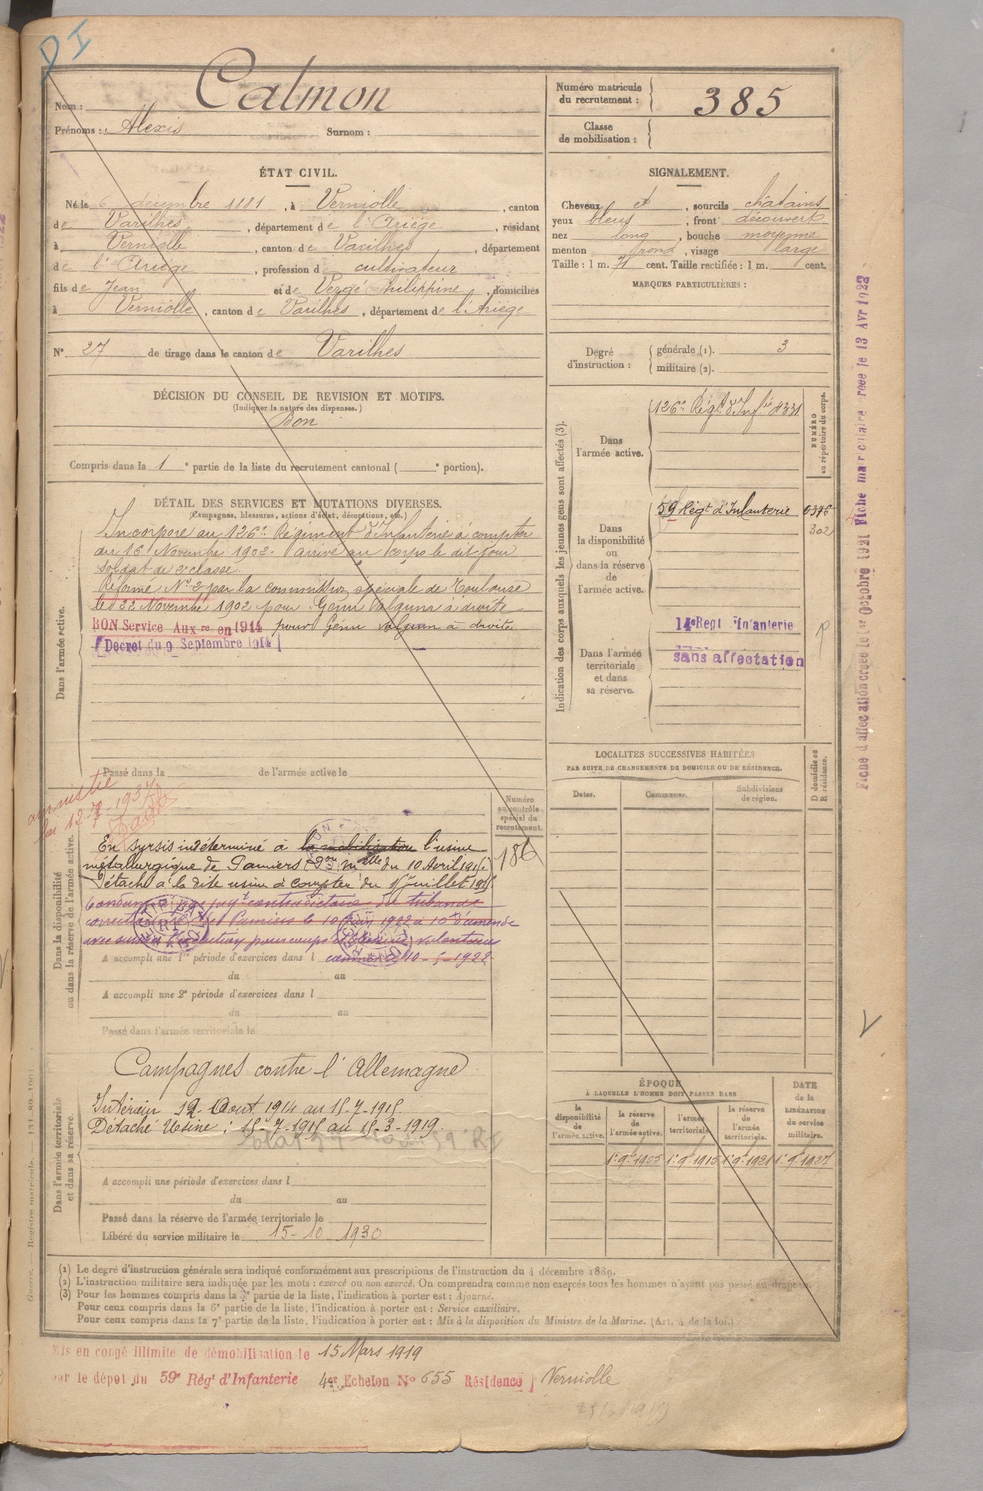 DI
Nom : Calmon
Prénoms : Alexis Surnom :
Numéro matricule du recrutement : 385
Classe de mobilisation :
ÉTAT CIVIL.
Né le 6 décembre 1881, à Verniolle, canton
de Varilhes, département de l'Ariège, résidant
à Verniolle, canton de Varilhes, département
de l'Ariège, profession d cultivateur
fils de Jean et de Vergé Philippine, domiciliés
à Verniolle, canton de Varilhes, département de l'Ariège
N° 27 de tirage dans le canton de Varilhes
SIGNALEMENT.
Cheveux et, sourcils châtains
yeux bleus, front découvert
nez long, bouche moyenne
menton rond, visage large
Taille : 1 m. 71 cent. Taille rectifiée : 1 m. cent.
MARQUES PARTICULIÈRES :
Degré d'instruction : générale (1). 3
militaire (2).
DÉCISION DU CONSEIL DE REVISION ET MOTIFS.
(Indiquer la nature des dispenses.)
Bon
Compris dans la 1e partie de la liste du recrutement cantonal ( e portion).
DÉTAIL DES SERVICES ET MUTATIONS DIVERSES.
(Campagnes, blessures, actions d'éclat, décorations, etc.)
Dans l'armée active.
Incorporé au 126e Régiment d'Infanterie à compter
du 16 Novembre 1902. Arrivé au Corps le dit jour
soldat de 2e classe.
Réformé N° 2 par la commission spéciale de Toulouse
le 22 Novembre 1902 pour Genu Valgum à droite
BON Service Aux re en 1914 pour Genu valgum à droite
[Décret du 9 Septembre 1914]
Passé dans la de l'armée active le
Indication des corps auxquels les jeunes gens sont affectés (3).
NUMÉRO au répertoire du corps.
Dans l'armée active.
126e Régt d'Infie
Dans la disponibilité ou dans la réserve de l'armée active.
59 Régt d'Infanterie
302
Dans l'armée territoriale et dans sa réserve.
14e Regt Infanterie
sans affectation
Fiche d'affectation créée le 1er Octobre 1921 Fiche matriculaire créée le 13 Avr 1922
LOCALITÉS SUCCESSIVES HABITÉES
PAR SUITE DE CHANGEMENTS DE DOMICILE OU DE RÉSIDENCE.
Dates.
Communes.
Subdivisions de région.
D domicile ou R résidence.
Numéro au contrôle spécial du recrutement.
186
amnistie
loi 12-7-1937
Dans la disponibilité ou dans la réserve de l'armée active.
En sursis indéterminé à la mobilisation l'usine
métallurgique de Pamiers du 10 Avril 1915.
Détaché à la dite usine à compter du 1 juillet 1915
Condamné par jugt contradictoire du tribunal
correctionnel de Pamiers le 10 1922 à 10 d'amende
avec sursis l'exécution pour coups et blessures volontaires
A accompli une 1re période d'exercices dans l commis le 10-5-1922
du au
A accompli une 2e période d'exercices dans l
du au
Passé dans l'armée territoriale le
Dans l'armée territoriale et dans sa réserve.
Campagnes contre l'Allemagne
Intérieur 12 Aout 1914 au 15-7-1915
Détaché Usine : 15-7-1915 au 15-3-1919.
A accompli une période d'exercices dans l
du au
Passé dans la réserve de l'armée territoriale le
Libéré du service militaire le 15-10-1930
ÉPOQUE
À LAQUELLE L'HOMME DOIT PASSER DANS
la disponibilité de l'armée active.
la réserve de l'armée active.
l'armée territoriale.
la réserve de l'armée territoriale.
DATE de la LIBÉRATION du service militaire.
1er 9e 1905 1er 9e 1915 1er 9e 1921 1er 9e 1927
(1) Le degré d'instruction générale sera indiqué conformément aux prescriptions de l'instruction du 4 décembre 1889.
(2) L'instruction militaire sera indiquée par les mots : exercé ou non exercé. On comprendra comme non exercés tous les hommes n'ayant pas passé au drapeau.
(3) Pour les hommes compris dans la 2e partie de la liste, l'indication à porter est : Ajourné.
Pour ceux compris dans la 6e partie de la liste, l'indication à porter est : Service auxiliaire.
Pour ceux compris dans la 7e partie de la liste, l'indication à porter est : Mis à la disposition du Ministre de la Marine. (Art. 4 de la loi.)
Mis en congé illimité de démobilisation le 15 Mars 1919
par le dépôt du 59e Régt d'Infanterie 4e Echelon N° 655 Résidence Verniolle